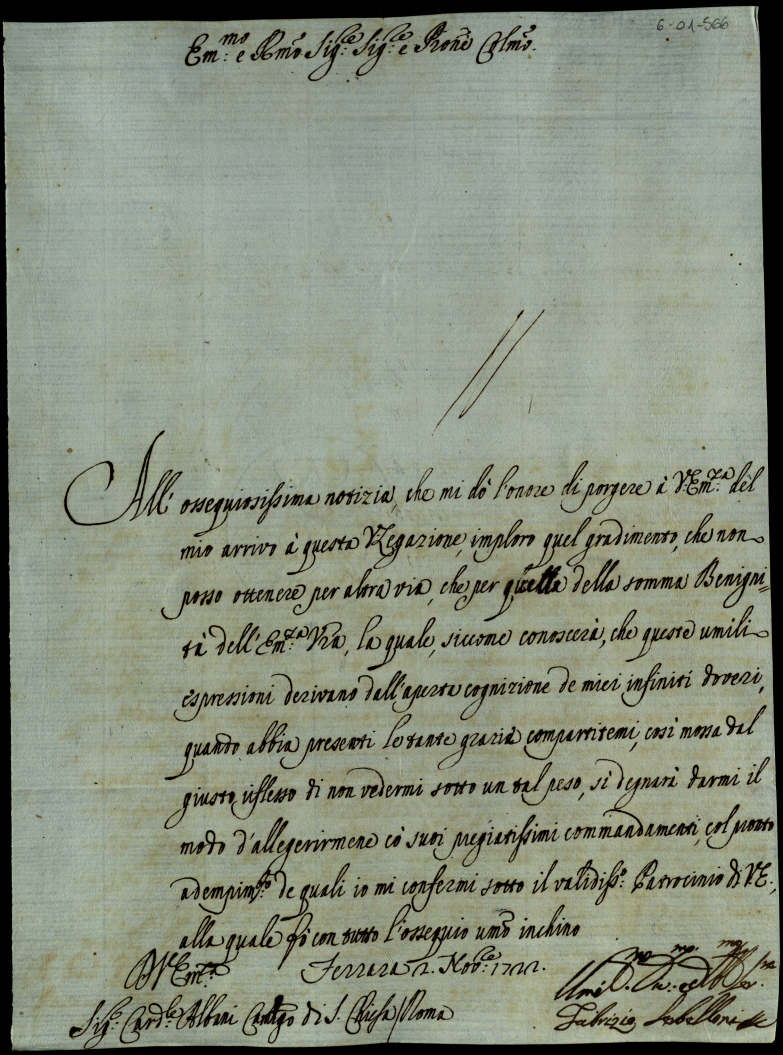 6-01-566
Em.mo e Rmo Sig.re Sig.re e Prone Colmo.
All' ossequiosissima notizia, che mi dò l'onore di porgere à V. Em.za del
mio arrivo à questa VLegazione, imploro quel gradimento, che non
posso ottenere per altra via, che per quella della somma Benigni=
tà dell' Em.za Vra, la quale, siccome conoscerà, che queste umili
espressioni derivano dall'aperta cognizione de miei infiniti doveri,
quando abbia presenti le tante grazie compartitemi, così mossa dal
giusto riflesso di non vedermi sotto un tal peso, si degnarà darmi il
modo d'allegerirmene cò suoi pregiatissimi commandamenti, col pronto
adempim.to de quali io mi confermi sotto il validiss.o Patrocinio di V.E.,
alla quale fò con tutto l'ossequio umo inchino
Di V. Em.za Ferrara 2. Nov.e 1722.
Umil.mo Dev.mo ed Obl.mo Ser.
Sig.r Card.le Albani Camlgo di S. Chiesa / Roma
Fabrizio Serbelloni